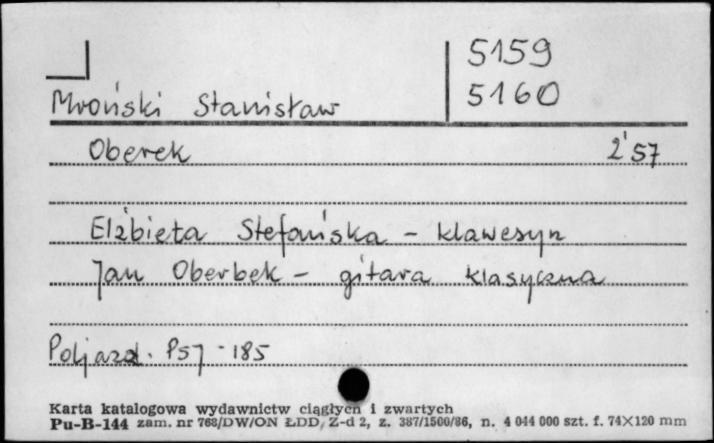 5159
5160
Mroński Stanisław
Oberek 2'57
Elżbieta Stefańska - klawesyn
Jan Oberbek - gitara klasyczna
Poljazd. PSJ - 185
Karta katalogowa wydawnictw ciągłych i zwartych
Pu-B-144 zam. nr 768/DW/ON ŁDD, Z-d 2, z. 387/1500/86, n. 4 044 000 szt. f. 74×120 mm